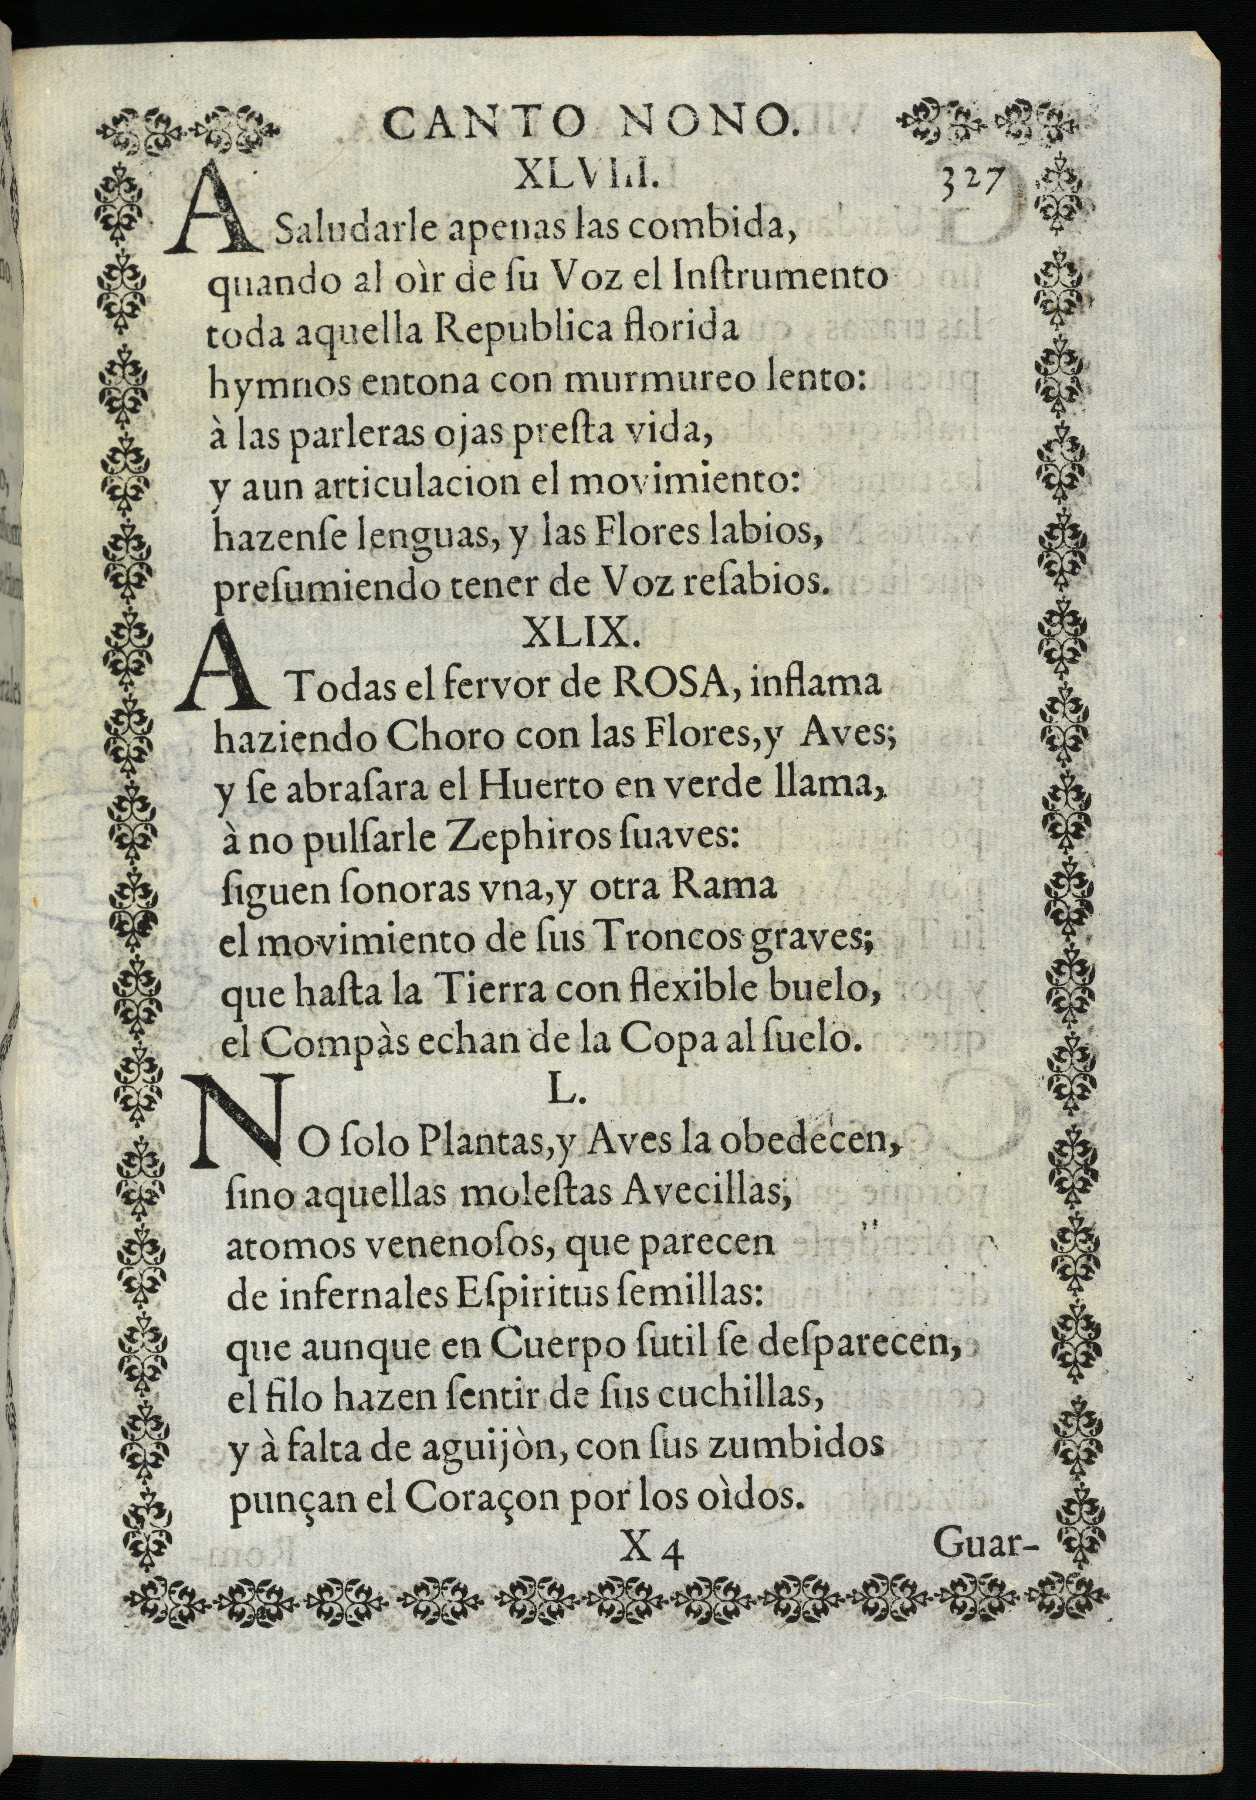 CANTO NONO.
XLVIII. 327
A Saludarle apenas las combida,
quando al oìr de ſu Voz el Inſtrumento
toda aquella Republica florida
hymnos entona con murmureo lento:
à las parleras ojas preſta vida,
y aun articulacion el movimiento:
hazenſe lenguas, y las Flores labios,
preſumiendo tener de Voz reſabios.
XLIX.
A Todas el fervor de ROSA, inflama
haziendo Choro con las Flores,y Aves;
y ſe abraſara el Huerto en verde llama,
à no pulſarle Zephiros ſuaves:
ſiguen ſonoras vna,y otra Rama
el movimiento de ſus Troncos graves;
que haſta la Tierra con flexible buelo,
el Compàs echan de la Copa al ſuelo.
L.
NO ſolo Plantas,y Aves la obedecen,
ſino aquellas moleſtas Avecillas,
atomos venenoſos, que parecen
de infernales Eſpiritus ſemillas:
que aunque en Cuerpo ſutil ſe deſparecen,
el filo hazen ſentir de ſus cuchillas,
y à falta de aguijòn, con ſus zumbidos
punçan el Coraçon por los oìdos.
X 4 Guar-